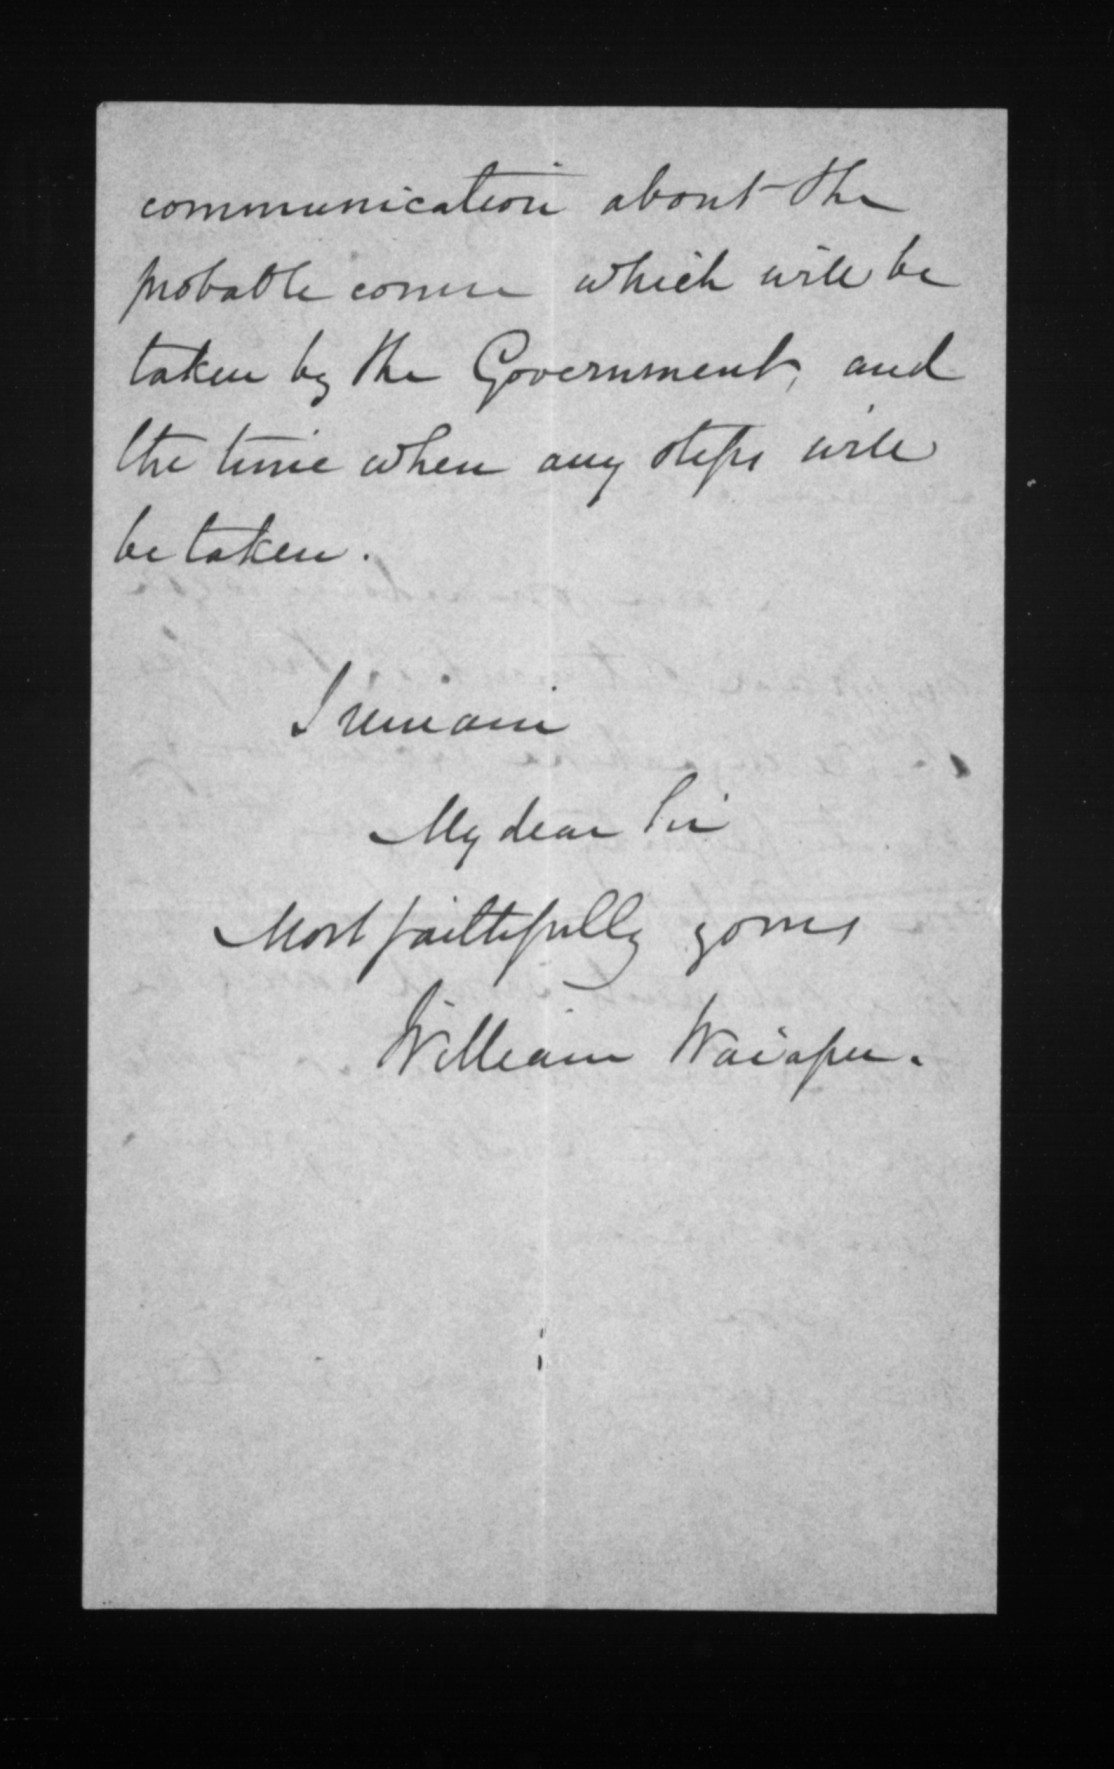 communication about the
probable course which will be
taken by the Government, and
the time when any steps will
be taken.
I remain
My dear Sir
Most faithfully yours
William Waiapu.